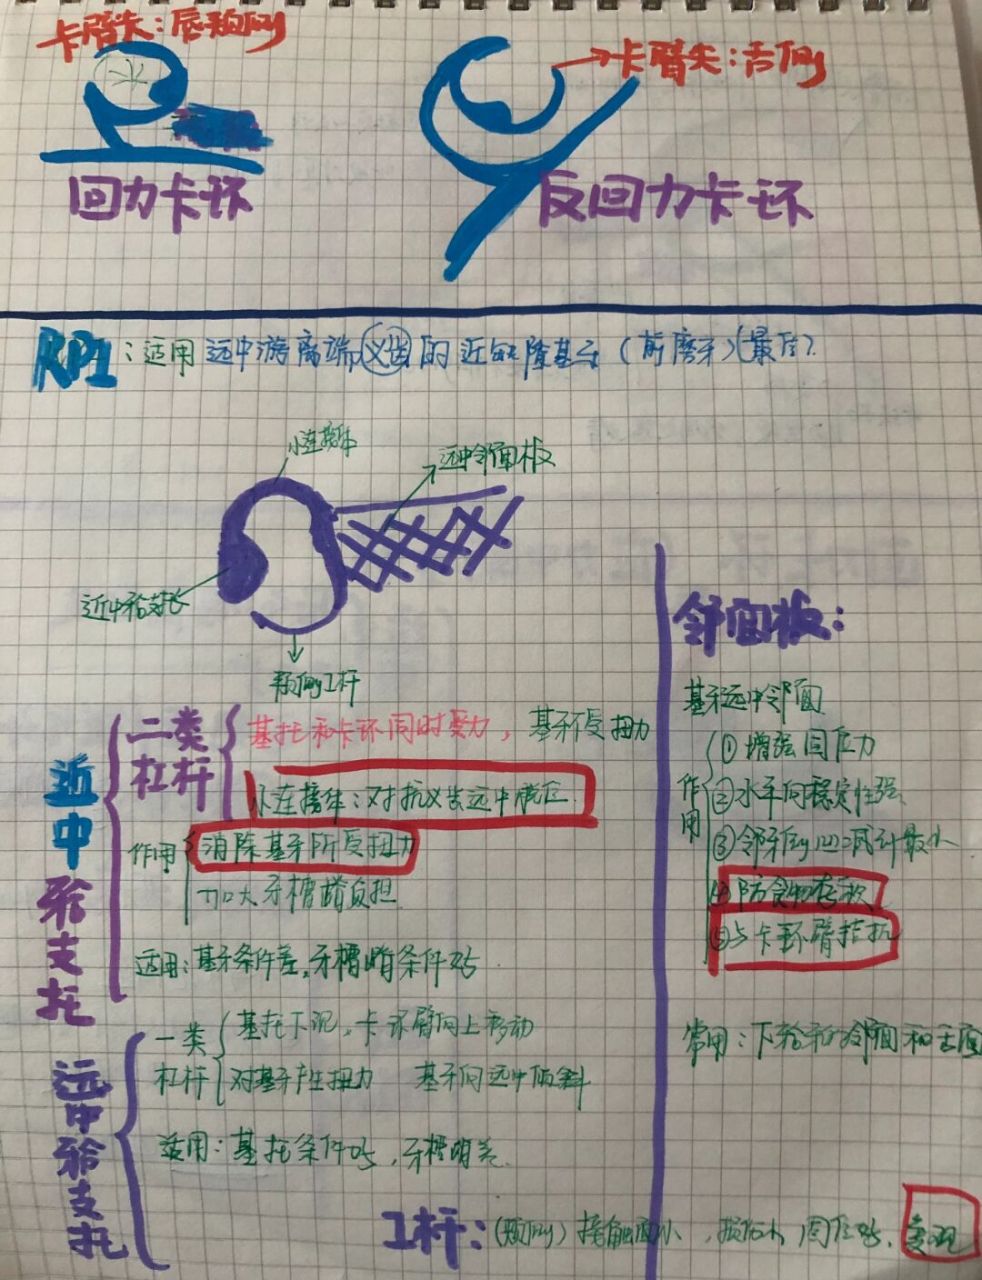 卡臂尖：唇颊侧
卡臂尖：舌侧
回力卡环
反回力卡环
RPI：适用 远中游离端义齿的近缺隙基牙（前磨牙）（最后）
小连接体
远中邻面板
近中𬌗支托
颊侧I杆
近中𬌗支托
二类杠杆
基托和卡环同时受力，基牙不受扭力
小连接体：对抗义齿远中脱位
作用
消除基牙所受扭力
加大牙槽嵴负担
适用：基牙条件差，牙槽嵴条件好
远中𬌗支托
一类杠杆
基托下沉，卡环臂向上移动
对基牙产生扭力 基牙向远中倾斜
适用：基托条件好，牙槽嵴差
邻面板：
基牙远中邻面
作用
①增强固位力
②水平向稳定性强
③邻牙侧凹减到最小
④防食物存积
⑤与卡环臂拮抗
常用：下颌牙的邻面和舌面
I杆：（颊侧）接触面小，损伤小，固位好，美观